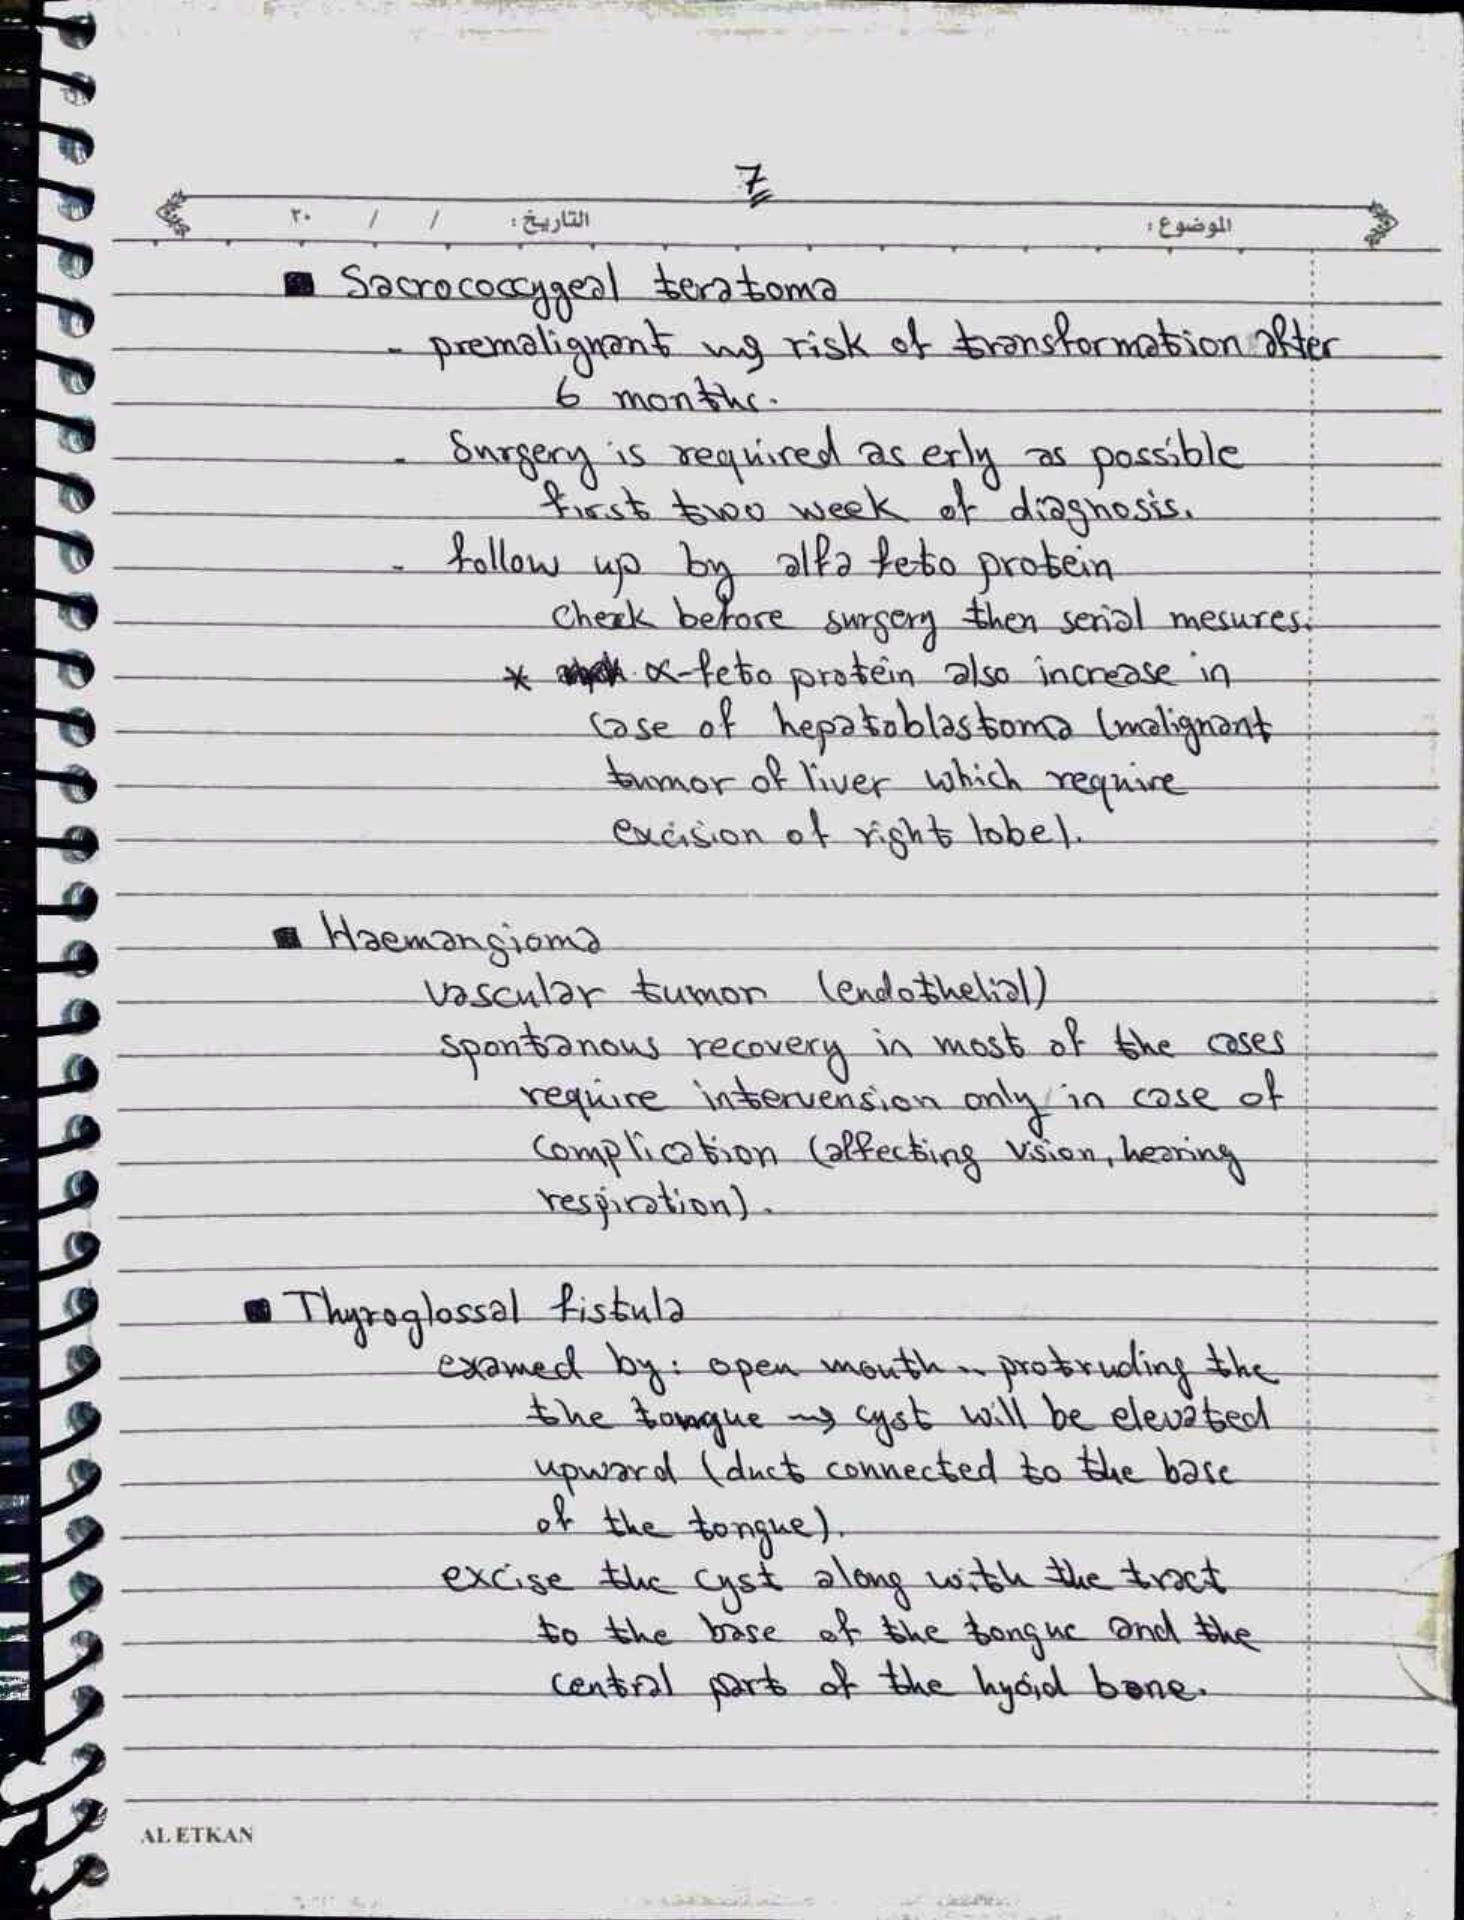 7
الموضوع: التاريخ: / / ٢٠
■ Sacrococcygeal teratoma
- premalignant → risk of transformation after
6 months.
- Surgery is required as erly as possible
first two week of diagnosis.
- follow up by alfa feto protein
check before surgery then serial mesures.
* α-feto protein also increase in
case of hepatoblastoma (malignant
tumor of liver which require
excision of right lobe).
■ Haemangioma
vascular tumor (endothelial)
spontanous recovery in most of the cases
require intervension only in case of
complication (affecting vision, hearing
respiration).
■ Thyroglossal fistula
examed by: open mouth .. protruding the
the tongue → cyst will be elevated
upward (duct connected to the base
of the tongue).
excise the cyst along with the tract
to the base of the tongue and the
central part of the hyoid bone.
AL ETKAN